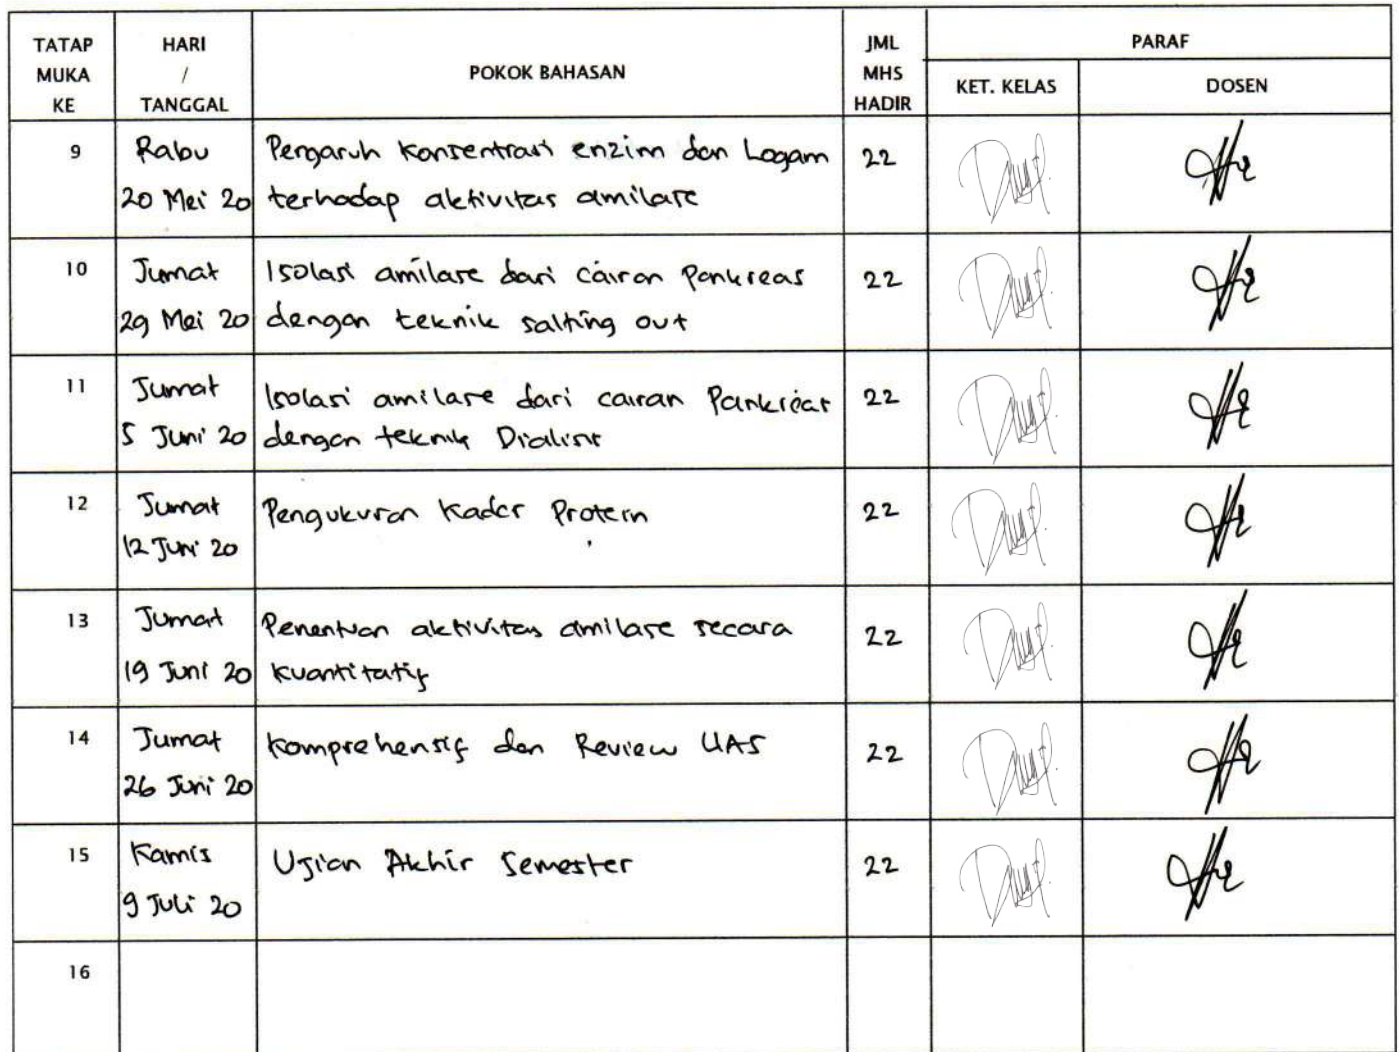 TATAP MUKA KE
HARI / TANGGAL
POKOK BAHASAN
JML MHS HADIR
PARAF
KET. KELAS
DOSEN
9
Rabu
20 Mei 20
Pengaruh konsentrasi enzim dan Logam
terhadap aktivitas amilase
22
10
Jumat
29 Mei 20
Isolasi amilase dari cairan Pankreas
dengan teknik salting out
22
11
Jumat
5 Juni 20
Isolasi amilase dari cairan Pankreas
dengan teknik Dialisis
22
12
Jumat
12 Juni 20
Pengukuran Kadar Protein
22
13
Jumat
19 Juni 20
Penentuan aktivitas amilase secara
kuantitatif
22
14
Jumat
26 Juni 20
Komprehensif dan Review UAS
22
15
Kamis
9 Juli 20
Ujian Akhir Semester
22
16